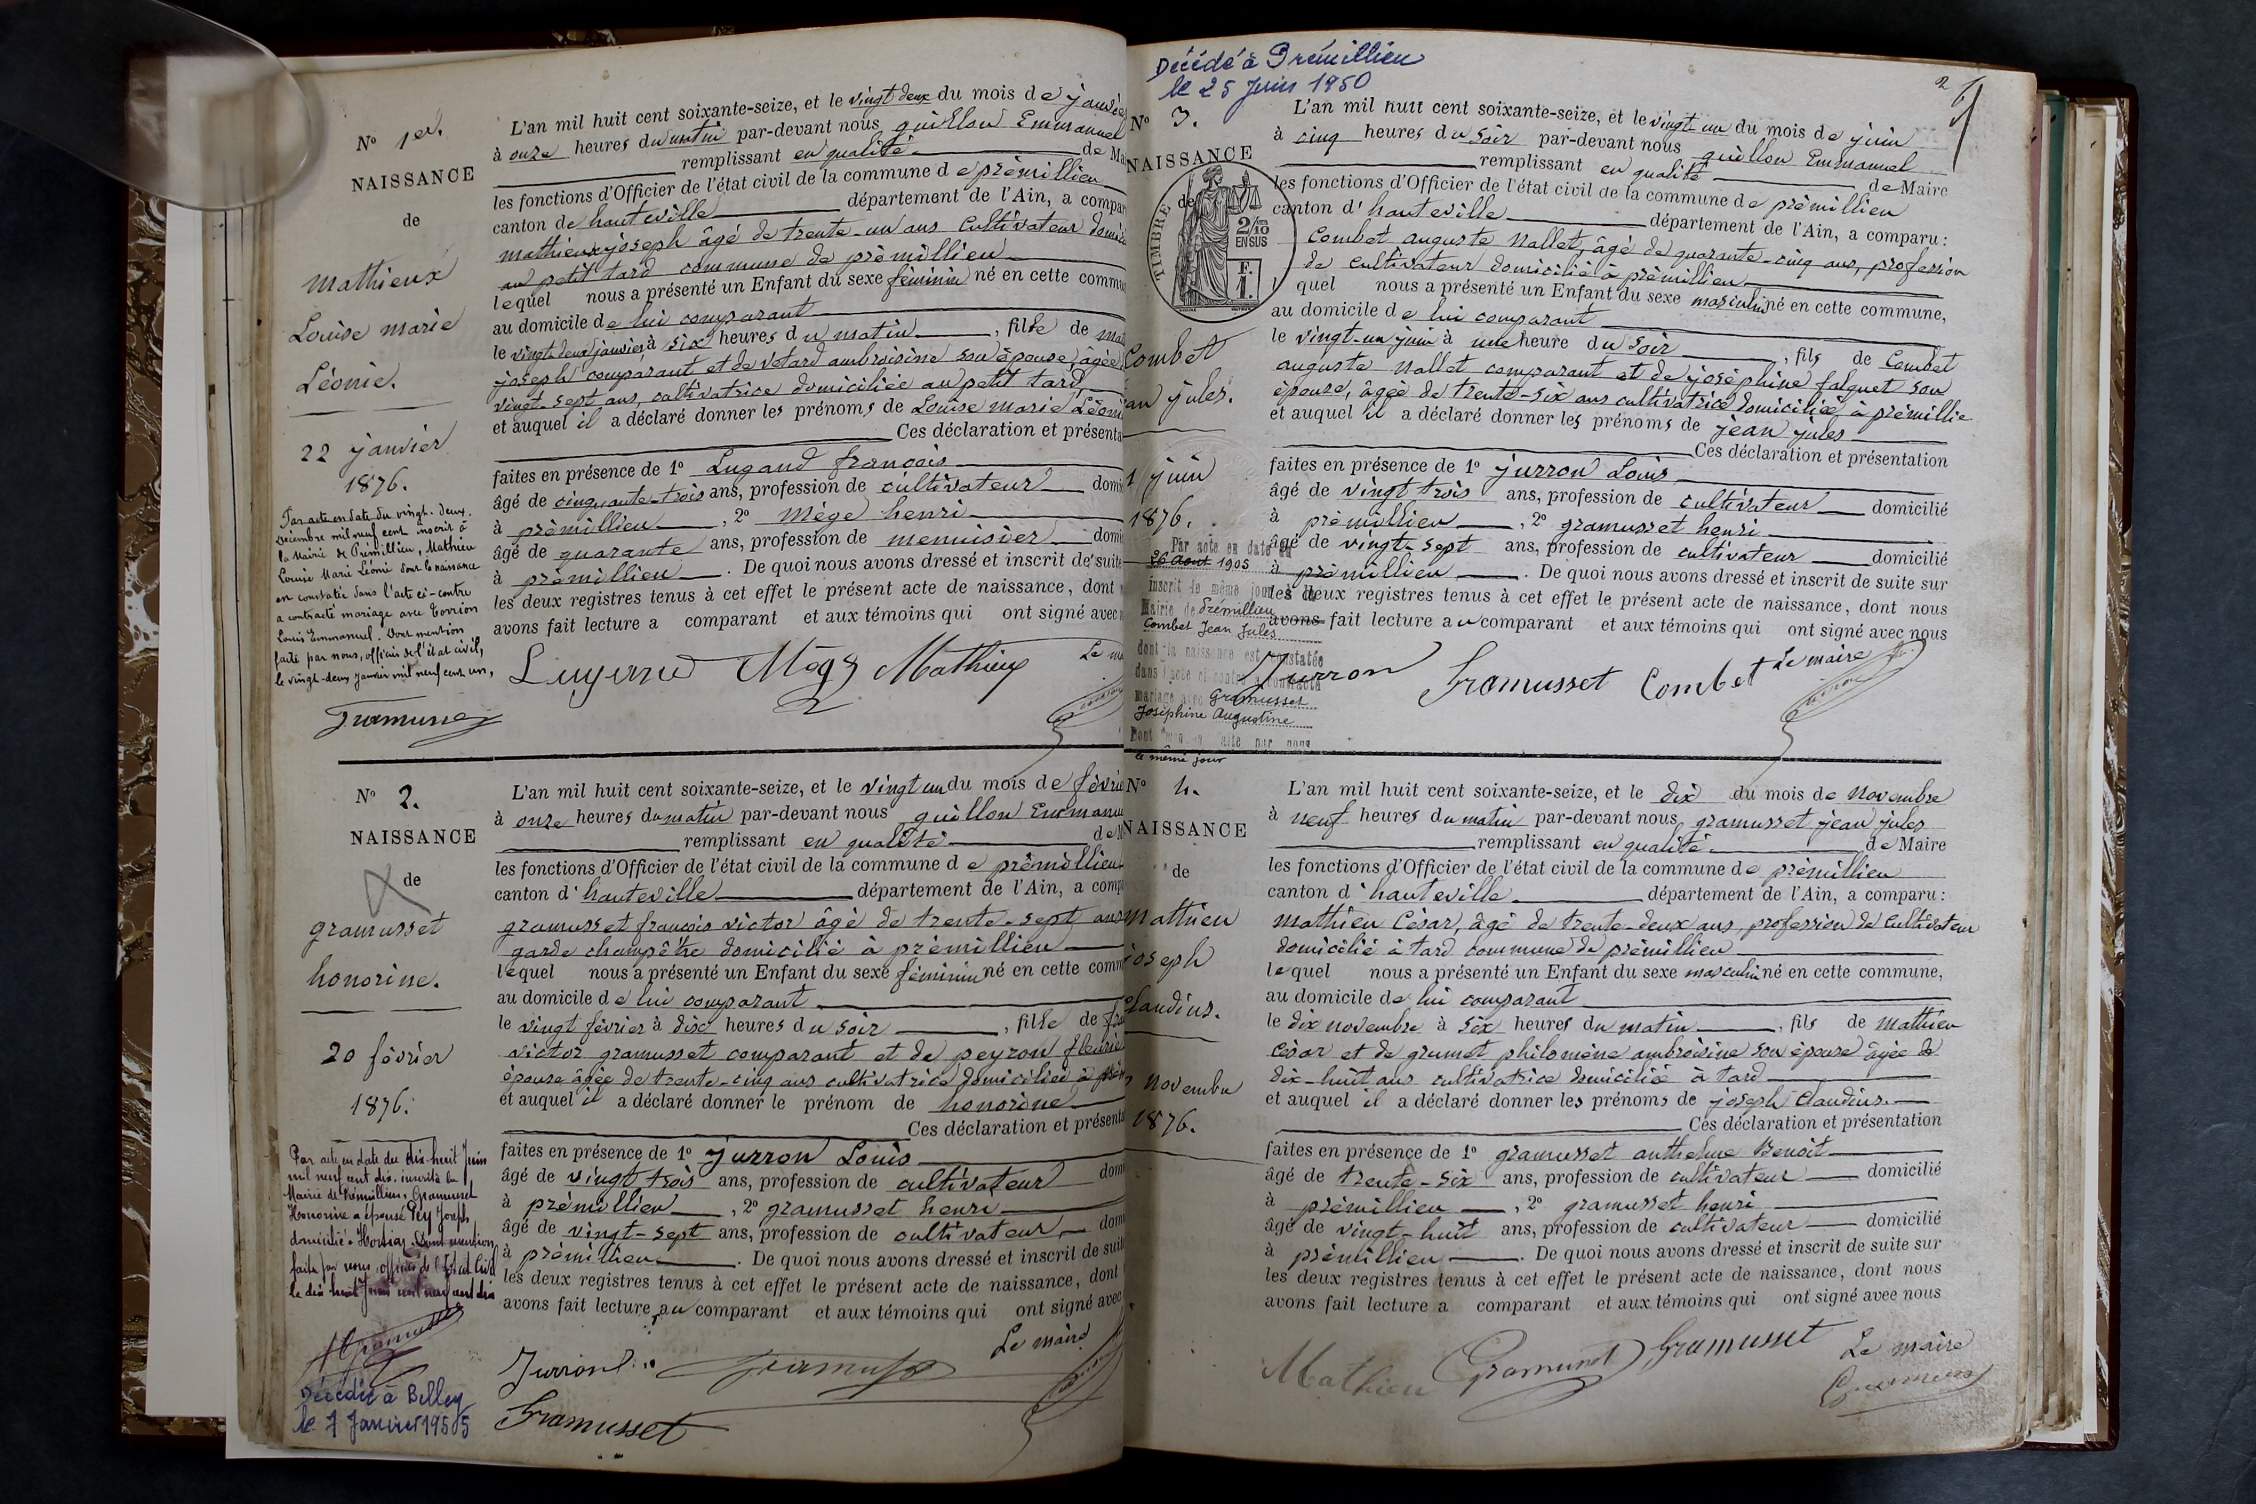 N° 1er.
NAISSANCE
de
Mathieux
Louise Marie
Léonie.
22 janvier
1876.
Par acte en date du vingt-deux
décembre mil neuf cent inscrit à
la Mairie de Prémillieu, Mathieu
Louise Marie Léonie dont la naissance
est constatée dans l'acte ci-contre
a contracté mariage avec
Louis Emmanuel. Dont mention
faite par nous, officier de l'état civil,
le vingt-deux janvier mil neuf cent un,
L'an mil huit cent soixante-seize, et le vingt deux du mois de janvie
à onze heures du matin par-devant nous guillon Emmanuel
remplissant en qualité de Ma
les fonctions d'Officier de l'état civil de la commune de prémillieu
canton de hauteville département de l'Ain, a compar
mathieux joseph âgé de trente-un ans cultivateur domici
au petit tard commune de prémillieu
lequel nous a présenté un Enfant du sexe féminin né en cette commu
au domicile de lui comparant
le vingt-deux janvier à six heures du matin, fille de ma
joseph comparant et de votard ambroisine son épouse, âgée
vingt-sept ans, cultivatrice domiciliée au petit tard
et auquel il a déclaré donner les prénoms de Louise marie Léoni
Ces déclaration et présenta
faites en présence de 1° Lugand françois
âgé de cinquante-trois ans, profession de cultivateur domi
à prémillieu, 2° Mége henri
âgé de quarante ans, profession de menuisier domi
à prémillieu. De quoi nous avons dressé et inscrit de suite
les deux registres tenus à cet effet le présent acte de naissance, dont
avons fait lecture a comparant et aux témoins qui ont signé avec
Mathieux
N° 2.
NAISSANCE
de
gramusset
honorine.
20 février
1876.
Par acte en date du dix-huit Juin
mil neuf cent dix, inscrit à la
Mairie de Prémillieu, Gramusset
Honorine a épousé Pey Joseph
domicilié à Dont mention
faite par nous officier de l'Etat Civil
le dix huit Juin mil neuf cent dix
Décédée à Belley
le 7 Janvier 1955
L'an mil huit cent soixante-seize, et le vingt un du mois de févrie
à onze heures du matin par-devant nous guillon Emmanu
remplissant en qualité de M
les fonctions d'Officier de l'état civil de la commune de prémillieu
canton d'hauteville département de l'Ain, a comp
gramusset françois victor âgé de trente-sept ans
garde champêtre domicilié à prémillieu
lequel nous a présenté un Enfant du sexe féminin né en cette comm
au domicile de lui comparant
le vingt février à dix heures du soir, fille de fra
victor gramusset comparant et de peyron fleurie
épouse âgée de trente-cinq ans cultivatrice domiciliée à prém
et auquel il a déclaré donner le prénom de honorine
Ces déclaration et présenta
faites en présence de 1° jurron Louis
âgé de vingt trois ans, profession de cultivateur domi
à prémillieu, 2° gramusset henri
âgé de vingt-sept ans, profession de cultivateur, domi
à prémillieu. De quoi nous avons dressé et inscrit de suite
les deux registres tenus à cet effet le présent acte de naissance, dont
avons fait lecture au comparant et aux témoins qui ont signé avec
Le maire
Jurron
Gramusset
Décédé à Prémillieu
le 25 Juin 1950
N° 3.
NAISSANCE
de
TIMBRE
2/10
EN SUS
F.
1.
Combet
an jules.
1 juin
1876.
Par acte en date du
26 Août 1905
inscrit le même jour à la
Mairie de Prémillieu
Combet Jean Jules
dont la naissance est constatée
dans l'acte ci-contre a contracté
mariage avec Gramusset
Joséphine Augustine
Dont mention faite par nous
le même jour
L'an mil huit cent soixante-seize, et le vingt-un du mois de juin
à cinq heures du soir par-devant nous guillon Emmanuel
remplissant en qualité de Maire
les fonctions d'Officier de l'état civil de la commune de prémillieu
canton d'hauteville département de l'Ain, a comparu:
Combet auguste Nallet, âgé de quarante-cinq ans, profession
de cultivateur domicilié à prémillieu
quel nous a présenté un Enfant du sexe masculin né en cette commune,
au domicile de lui comparant
le vingt-un juin à une heure du soir, fils de Combet
auguste Nallet comparant et de joséphine falquet son
épouse, âgée de trente-six ans cultivatrice domiciliée à prémillie
et auquel il a déclaré donner les prénoms de jean jules
Ces déclaration et présentation
faites en présence de 1° jurron Louis
âgé de vingt trois ans, profession de cultivateur domicilié
à prémillieu, 2° gramusset henri
âgé de vingt-sept ans, profession de cultivateur domicilié
à prémillieu. De quoi nous avons dressé et inscrit de suite sur
les deux registres tenus à cet effet le présent acte de naissance, dont nous
avons fait lecture au comparant et aux témoins qui ont signé avec nous
Jurron Gramusset Combet Le maire
N° 4.
NAISSANCE
de
mathieu
joseph
claudius.
novembre
1876.
L'an mil huit cent soixante-seize, et le dix du mois de novembre
à neuf heures du matin par-devant nous gramusset jean jules
remplissant en qualité de Maire
les fonctions d'Officier de l'état civil de la commune de prémillieu
canton d'hauteville département de l'Ain, a comparu:
mathieu César, âgé de trente-deux ans, profession de cultivateur
domicilié à tard commune de prémillieu
lequel nous a présenté un Enfant du sexe masculin né en cette commune,
au domicile de lui comparant
le dix novembre à six heures du matin, fils de mathieu
César et de grumet philomène ambroisine son épouse âgée de
dix-huit ans cultivatrice domicilié à tard
et auquel il a déclaré donner les prénoms de joseph claudius.
Ces déclaration et présentation
faites en présence de 1° gramusset anthelme Benoit
âgé de trente-six ans, profession de cultivateur domicilié
à prémillieu, 2° gramusset henri
âgé de vingt-huit ans, profession de cultivateur domicilié
à prémillieu. De quoi nous avons dressé et inscrit de suite sur
les deux registres tenus à cet effet le présent acte de naissance, dont nous
avons fait lecture a comparant et aux témoins qui ont signé avec nous
Mathieu Gramusset Gramusset Le maire